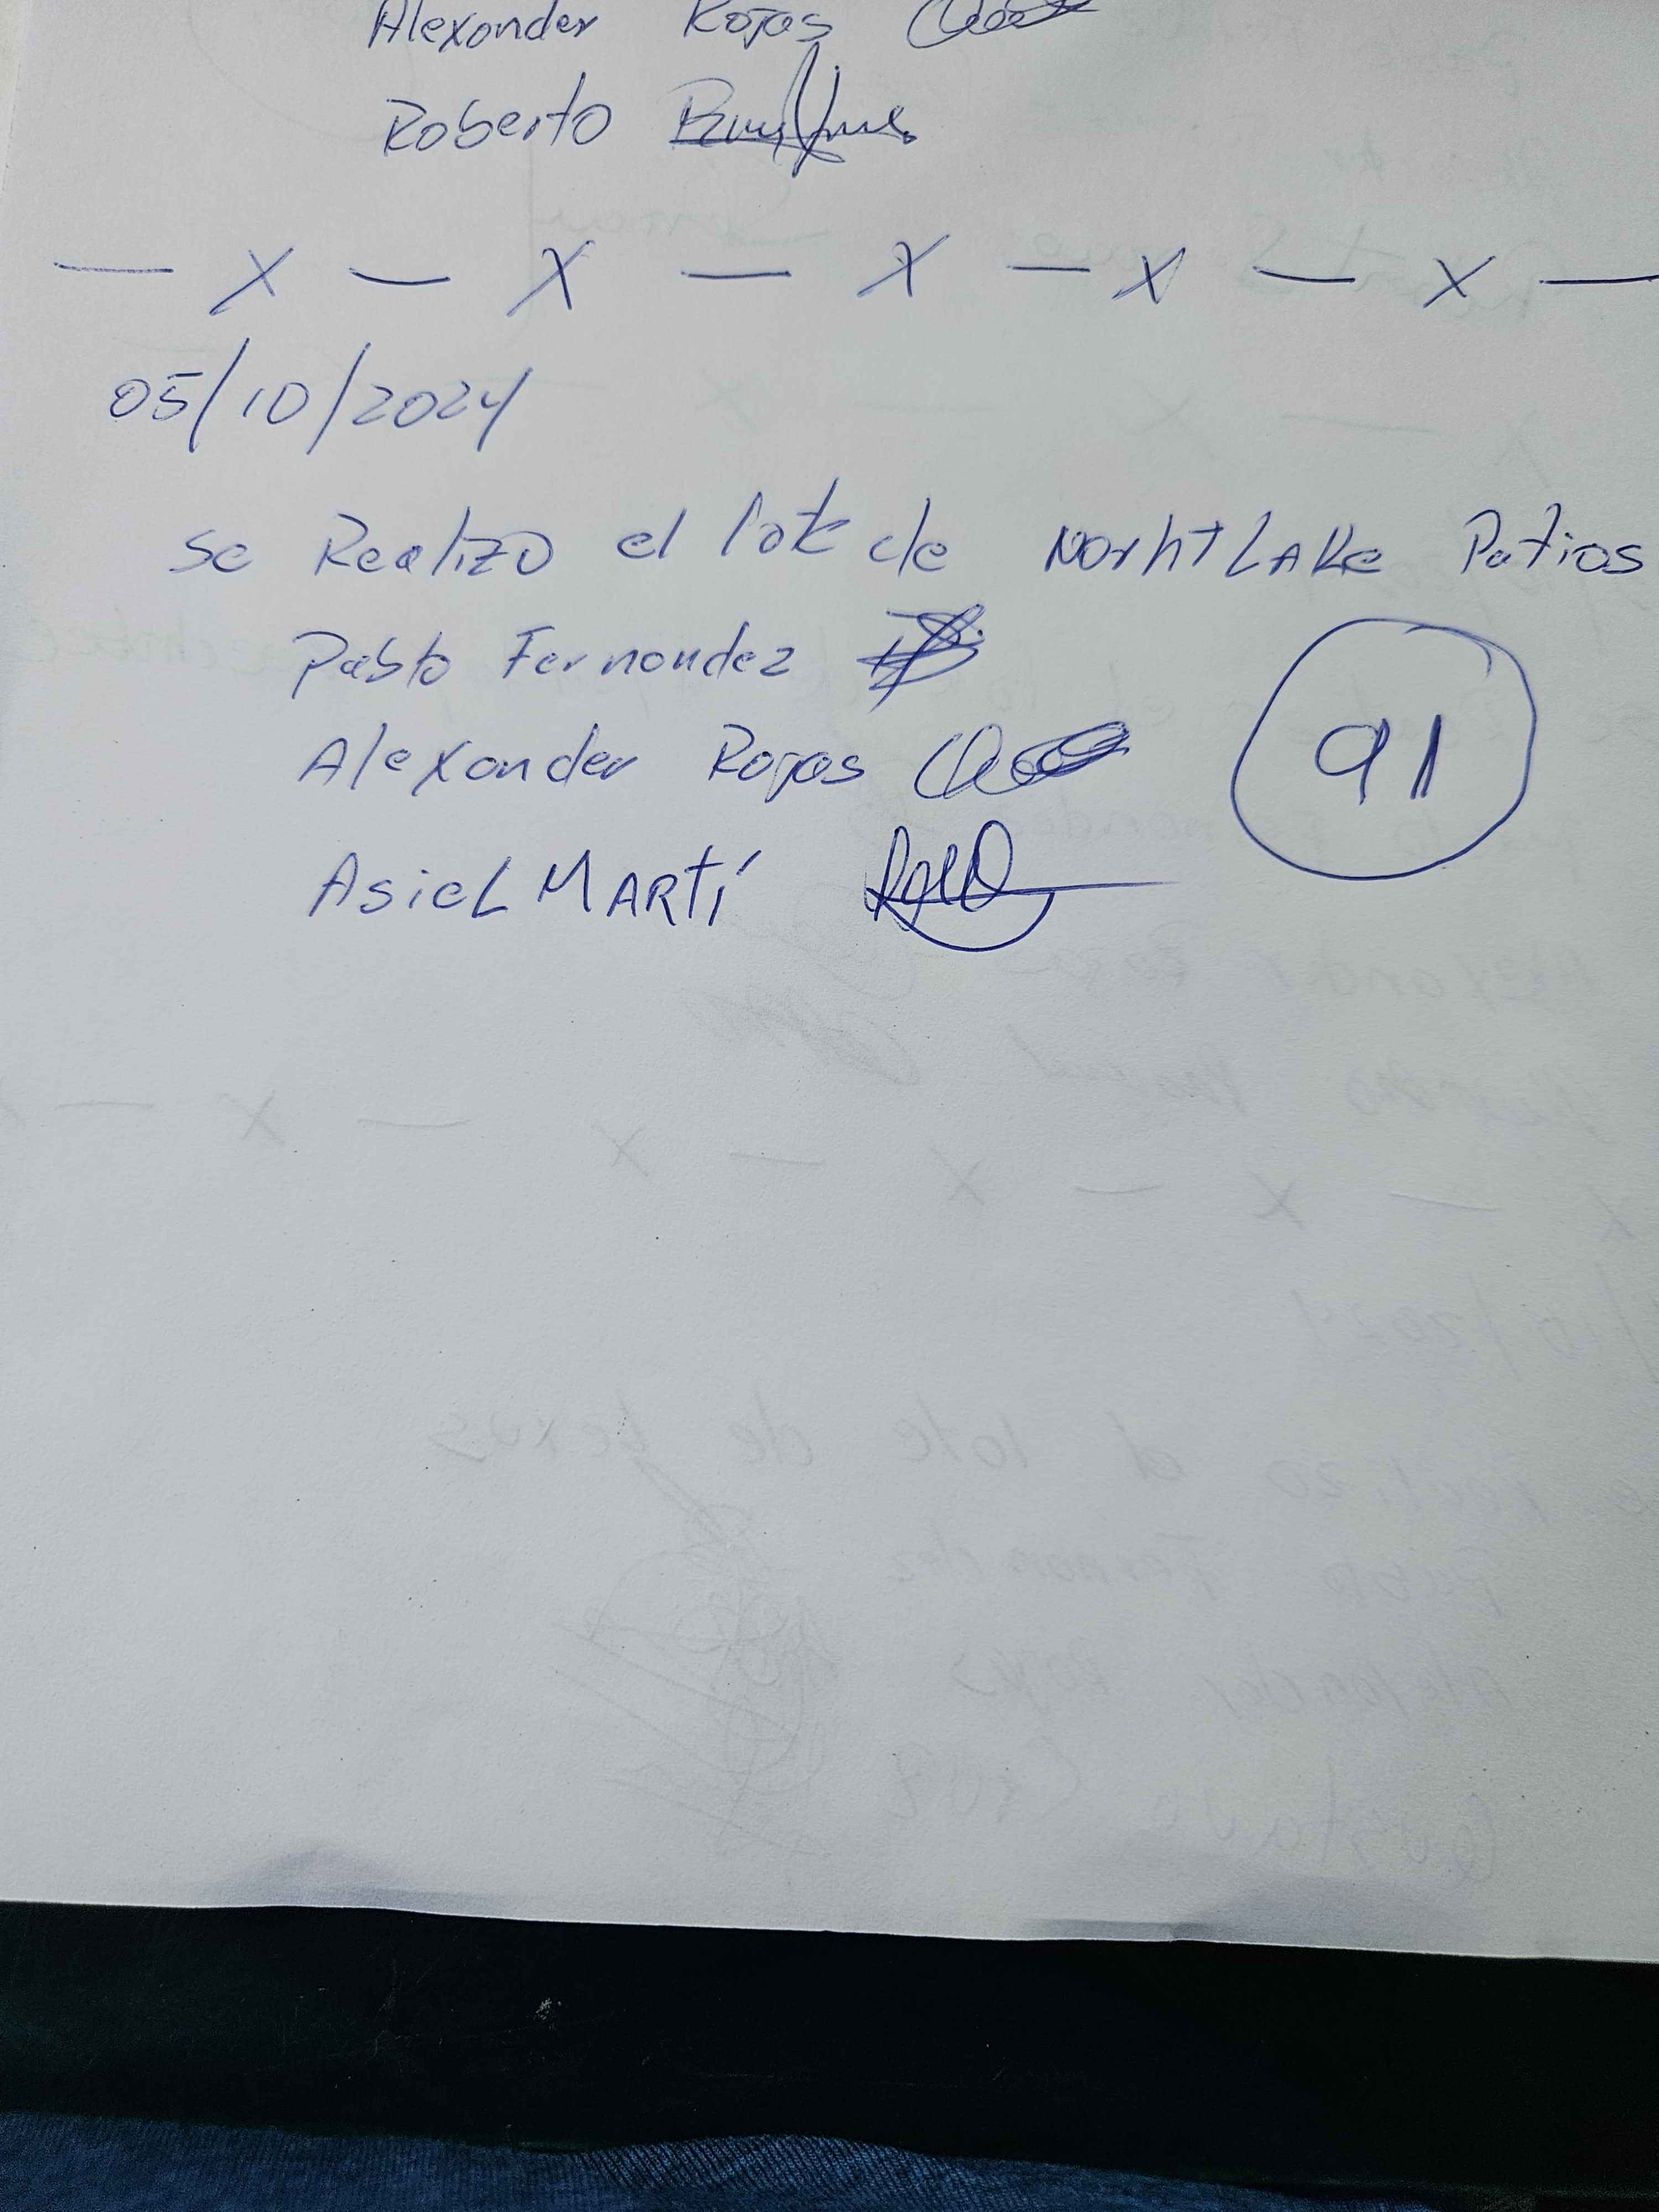 Alexander Rojas
Roberto
— X — X — X — X — X —
05/10/2024
se Realizo el lote de NorhtLAKe Patios
Pablo Fernandez
Alexander Rojas
91
AsieL MARTÍ